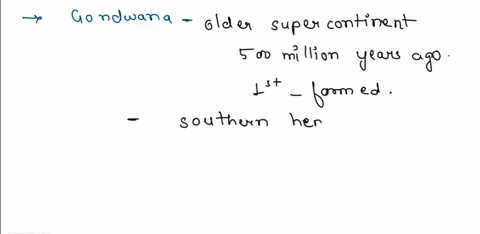 → Gondwana - older supercontinent
500 million years ago.
1st - formed.
- southern her